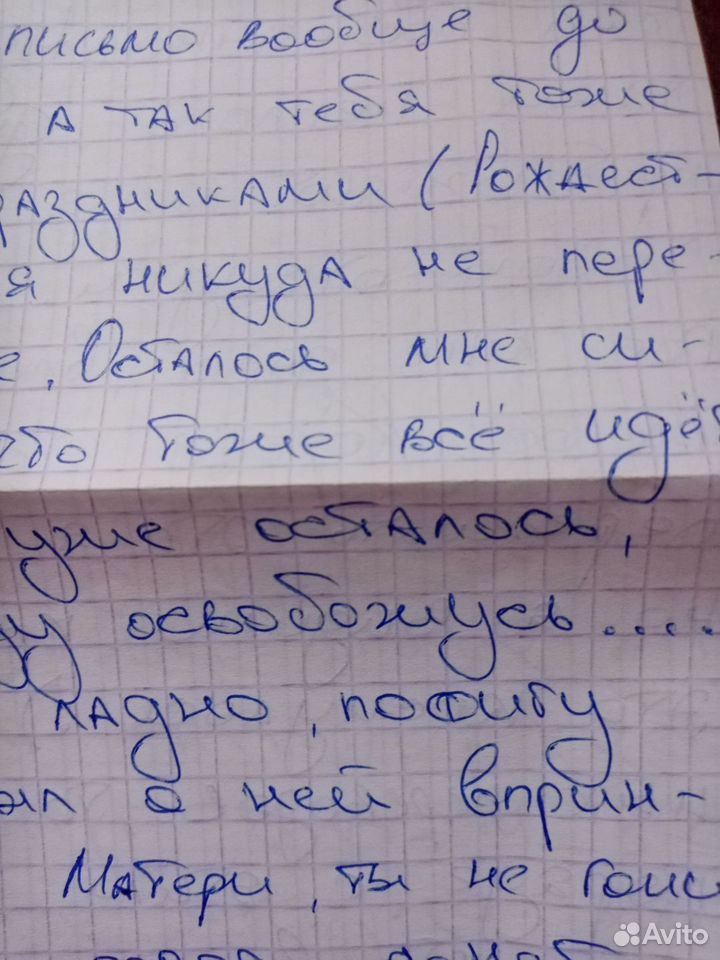 письмо вообще до
а так тебя тоже
раздниками (Рождест-
я никуда не пере-
е. Осталось мне си-
что тоже всё идёт
уже осталось,
ду освобожусь....
ладно, пофигу
ял о ней вприн-
Матери, ты не
Avito